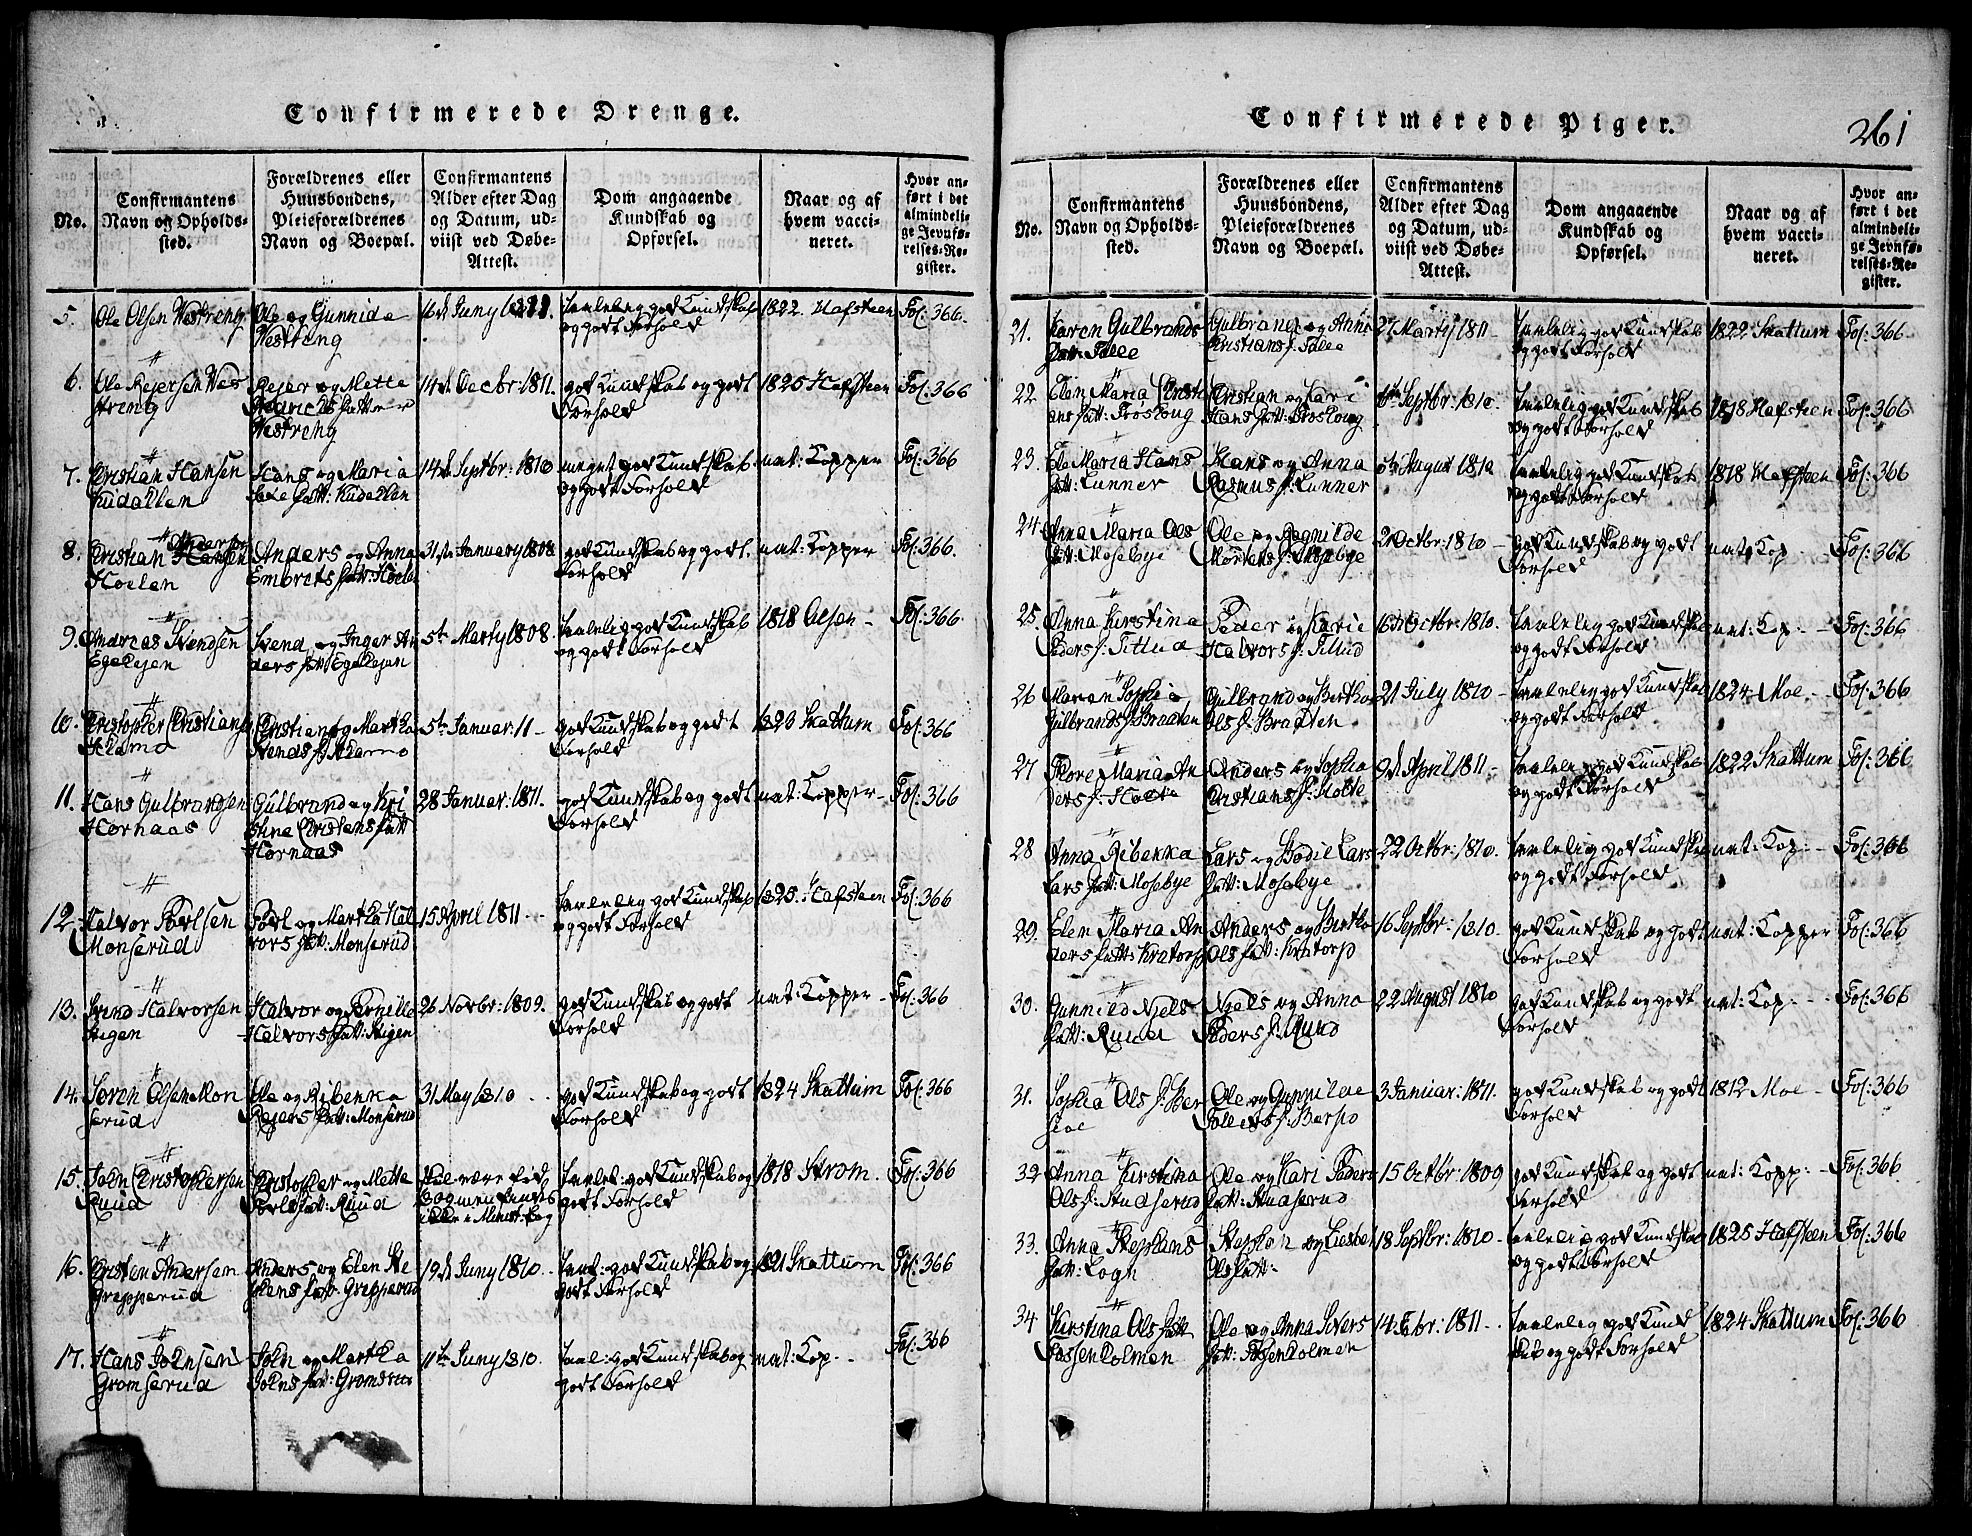 Confirmerede Drenge.
No.
Confirmantens
Navn og Opholds-
sted.
Forældrenes eller
Huusbondens,
Pleieforældrenes
Navn og Boepæl.
Confirmantens
Alder efter Dag
og Datum, ud-
viist ved Døbe-
Attest.
Dom angaaende
Kundskab og
Opførsel.
Naar og af
hvem vacci-
neret.
Hvor an-
ført i det
almindeli-
ge Jevnfø-
relses-Re-
gister.
5.
Ole Olsen Westreng
Ole og Gunnide
Westreng
16de Juny
taalelig god Kundskab
og godt Forhold
1822 Hafsteen
Fol: 366.
6.
Ole Rejersen Wes
streng
Rejer og Mette
Westreng
14de Decbr: 1811.
god Kundskab og godt
Forhold
1825 Hafsteen
Fol: 366
7.
Cristian Hansen
Kudallen
Hans og Maria
datt: Kudallen
14de Septbr: 1810
meget god Kundskab
og godt Forhold
nat: Kopper
Fol: 366
8.
Anders
Cristian Hansen
Hoelen
Anders og Anna
Embrets datt: Hoele
31te January 1808.
god Kundskab og godt
Forhold
nat: Kopper
Fol: 366.
9.
Andreas Svendsen
Egelejen
Svend og Inger An
ders datt: Egelejen
5te Marty 1808.
taalelig god Kundskab
og godt Forhold
1818 Olsen
Fol: 366
10.
Cristopher Cristians
Hamo
Cristian og Martha
Svends d: Hamo
5te Januar: 11
god Kundskab og godt
Forhold
1823 Skattum
Fol: 366
11.
Hans Gulbrandsen
Hornaas
Gulbrand og Kri
stine Cristens datt
Hornaas
28 Januar: 1811.
god Kundskab og godt
Forhold
nat: Kopper
Fol: 366
12.
Halvor Povelsen
Monserud
Povel og Martha Hal
vors datt: Monserud
15 April 1811
taalelig god Kundskab
og godt Forhold
1825 Hafsteen
Fol: 366
13.
Svend Halvorsen
Stigen
Halvor og Pernille
Halvors datt: Stigen
26 Novbr: 1809.
god Kundskab og godt
Forhold
nat: Kopper
Fol: 366
14.
Søren Olsen Mon
serud
Ole og Ribekka
Rejers datt: Monserud
31 May 1810
god Kundskab og godt
Forhold
1824 Skattum
Fol: 366
15.
John Cristophersen
Ruud
Cristopher og Mette
Povels datt: Ruud
Skal være fød
ikke i Minist: bog
taalel: god Kundskab og
godt Forhold
1818 Strøm.
Fol: 366
16.
Cristen Andersen
Grepperud
Anders og Elen Ste
phens datt: Grepperud
19de Juny 1810.
taal: god Kundskab og
godt Forhold
1821 Skattum
Fol: 366
17.
Hans Johnsen
Gromserud
John og Martha
Johns datt: Gromserud
11te Juny 1810.
taal: god Kundskab og
godt Forhold
nat: Kop
Fol: 366
Confirmerede Piger.
261
No.
Confirmantens
Navn og Opholds-
sted.
Forældrenes eller
Huusbondens,
Pleieforældrenes
Navn og Boepæl.
Confirmantens
Alder efter Dag
og Datum, ud-
viist ved Døbe-
Attest.
Dom angaaende
Kundskab og
Opførsel.
Naar og af
hvem vacci-
neret.
Hvor an-
ført i det
almindeli-
ge Jevnfø-
relses-Re-
gister.
21.
Karen Gulbrands
datt: Falle
Gulbrand og Anne
Cristians d: Falle
2de Marty 1811
taalelig god Kundskab
og godt Forhold
1822 Skattum
Fol: 366
22.
Elen Maria Cristi
ans datt: Froshoug
Cristian og Kari
Hans datt: Froshoug
6te Septbr: 1810.
taalelig god Kundskab
og godt Forhold
1818 Hafsteen
Fol: 366
23.
Ele Maria Hans
datt: Lunner
Hans og Anna
Rasmus d: Lunner
August 1810
taalelig god Kundskab
og godt Forhold
1818 Hafsteen
Fol: 366
24.
Anna Maria Ols
datt: Mosebye
Ole og Ragnilde
Mortens d: Mosebye
2 Octbr: 1810
god Kundskab og godt
Forhold
nat: Kop
Fol: 366
25.
Anna Kirstina
Peders d: Tillud
Peder og Karie
Halvors d: Tillud
16de Octbr: 1810.
taalelig god Kundskab
og godt Forhold
nat: Kop:
Fol: 366
26
Maren Sophie
Gulbrands d: Braaten
Gulbrand og Bertha
Ols d: Braaten
21 July 1810
taalelig god Kundskab
og godt Forhold
1824 Moe
Fol: 366
27
Flore Maria An
ders d: Holte
Anders og Sophia
Cristians d: Holte
9de April 1811
taalelig god Kundskab
og godt Forhold
1822 Skattum
Fol: 366
28
Anna Ribekka
Lars datt: Mosebye
Lars og Bodil Lars
datt: Mosebye
22 Octbr: 1810.
taalelig god Kundskab
og godt Forhold
nat: Kop:
Fol: 366
29.
Elen Maria An
ders datt: Kratorp
Anders og Bertha
Ols datt: Kratorp
16 Septbr: 1810.
god Kundskab og godt
Forhold
nat: Kopper
Fol: 366
30.
Gunnild Njels
datt: Ruud
Njels og Anna
Peders d: Ruud
22 August 1810
god Kundskab og godt
Forhold
nat: Kop:
Fol: 366
31.
Sophia Ols d: Ber
Ole og Gunnilde
3 Januar: 1811.
god Kundskab og godt
Forhold
1812 Moe
Fol: 366
32
Anna Kirstina
Ols d: Studserud
Ole og Kari Peders
datt: Studserud
15 Octbr: 1809
god Kundskab og godt
Forhold
nat: Kopp:
Fol: 366
33.
Anna Stephans
datt: Logn
Stephan og Liesbet
Ols datt:
18 Septbr: 1810
taalelig god Kundskab
og godt Forhold
1825 Hafsteen
Fol: 366
34
Kirstina Ols datt
Fossenholmen
Ole og Anna Sivers
datt: Fossenholmen
14 Febr: 1811
taalelig god Kund
skab og godt Forhold
1824 Skattum
Fol: 366